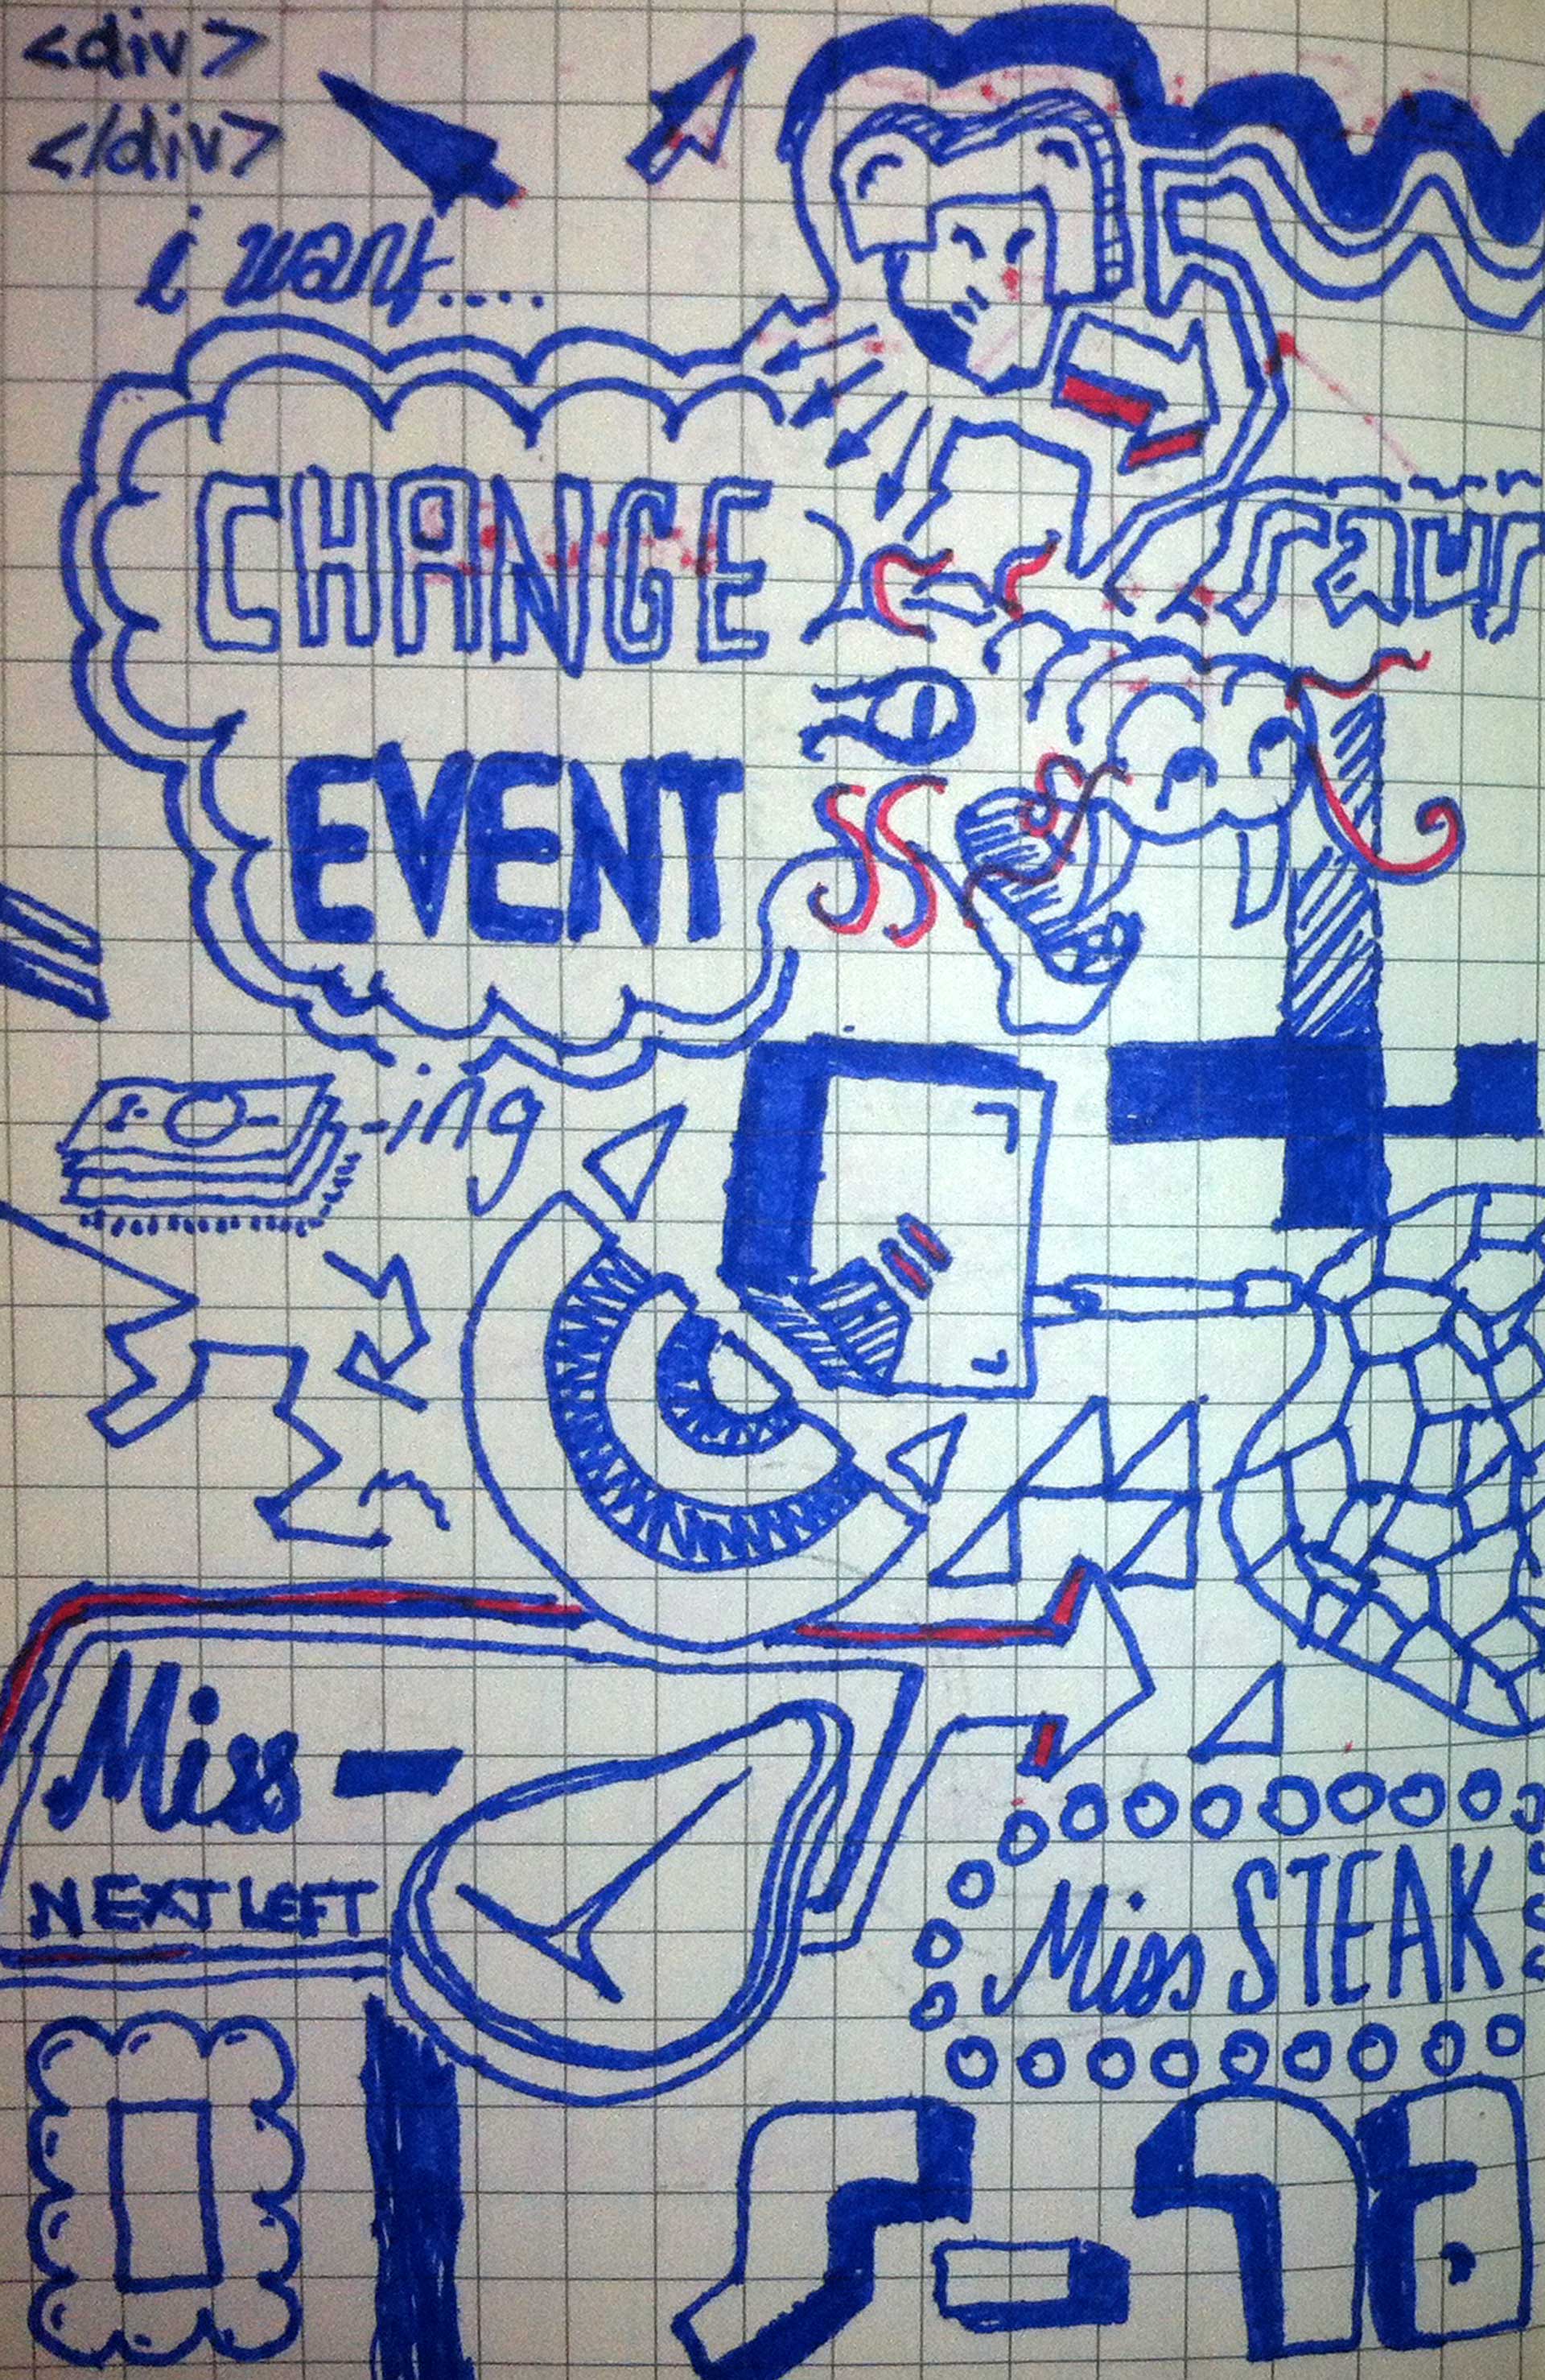 <div>
</div>
i want....
CHANGE
EVENT
-ing
Miss -
NEXT LEFT
Miss STEAK